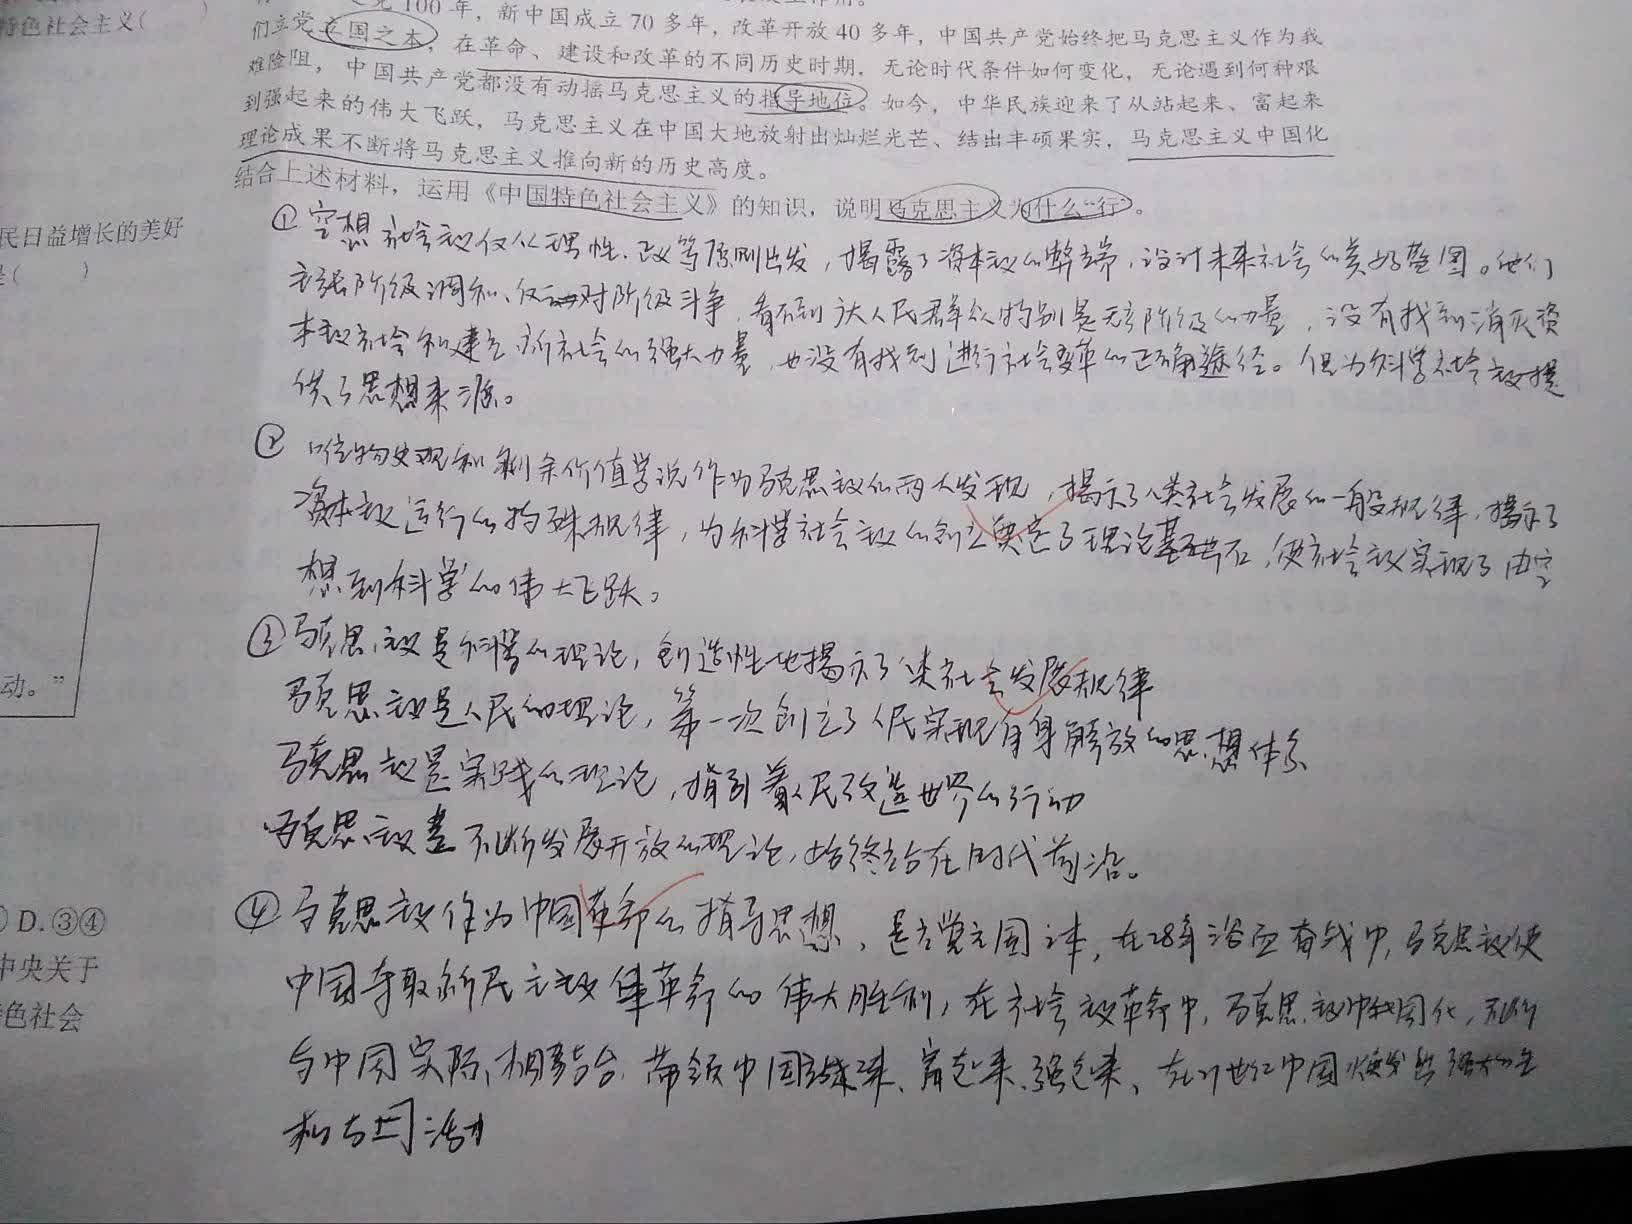 100年，新中国成立70多年，改革开放40多年，中国共产党始终把马克思主义作为我
特色社会主义（ ）
们立党立国之本，在革命、建设和改革的不同历史时期，无论时代条件如何变化，无论遇到何种艰
难险阻，中国共产党都没有动摇马克思主义的指导地位。如今，中华民族迎来了从站起来、富起来
到强起来的伟大飞跃，马克思主义在中国大地放射出灿烂光芒、结出丰硕果实，马克思主义中国化
理论成果不断将马克思主义推向新的历史高度。
结合上述材料，运用《中国特色社会主义》的知识，说明马克思主义为什么“行”。
民日益增长的美好
是（ ）
动。”
D.③④
中央关于
色社会
①空想社会主义仅从理性、正义等原则出发，揭露了资本主义的弊端，设计未来社会的美好蓝图。他们
主张阶级调和、仅对阶级斗争，看不到广大人民群众特别是无产阶级的力量，没有找到消灭资
本主义社会和建立新社会的强大力量，也没有找到进行社会变革的正确途径。但为科学社会主义提
供了思想来源。
②唯物史观和剩余价值学说作为马克思主义的两大发现，揭示了人类社会发展的一般规律，揭示了
资本主义运行的特殊规律，为科学社会主义的创立奠定了理论基石，使社会主义实现了由空
想到科学的伟大飞跃。
③马克思主义是科学的理论，创造性地揭示了人类社会发展规律
马克思主义是人民的理论，第一次创立了人民实现自身解放的思想体系
马克思主义是实践的理论，指引着人民改造世界的行动
马克思主义是不断发展开放的理论，始终站在时代前沿。
④马克思主义作为中国革命的指导思想，是立党立国之本，在28年浴血奋战中，马克思主义使
中国夺取新民主主义革命的伟大胜利，在社会主义革命中，马克思主义中国化，不断
与中国实际相结合，带领中国站起来、富起来、强起来，在21世纪中国焕发出强大的生
机与活力